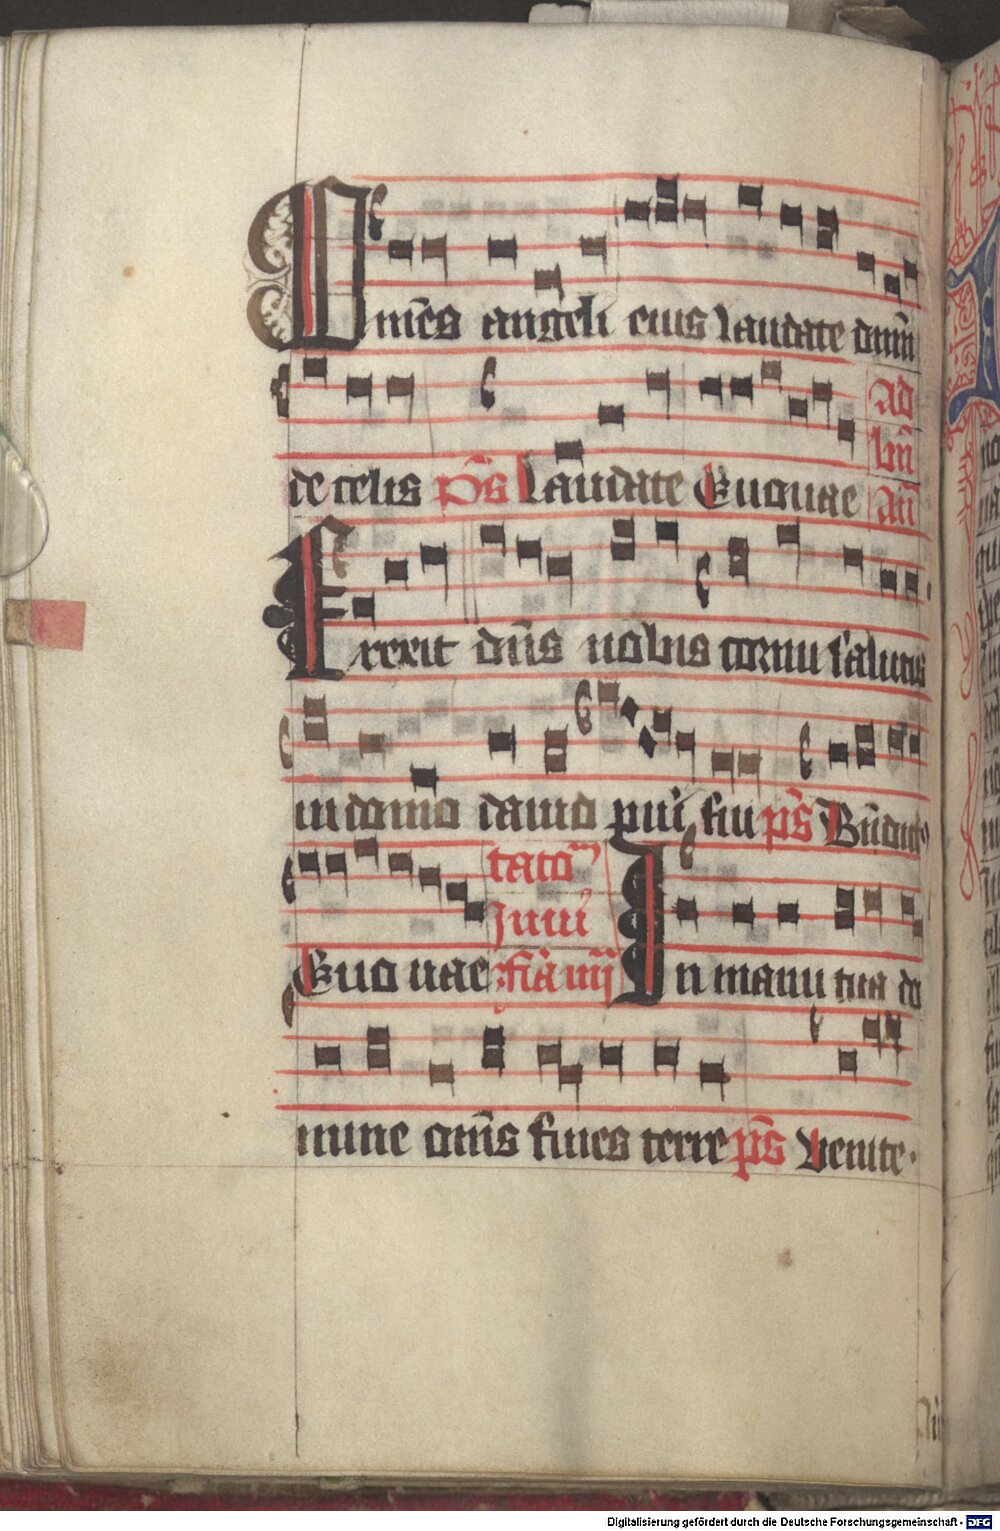 Omēs angeli eius laudate dnm̄
de celis p̄s Laudate Euouae Ad bn̄ an̄
Erexit dn̄s nobis cornu salutis
in domo dauid pueri sui p̄s Bn̄dictꝰ
Euouae Inuitatoꝝ fīa iiij In manu tua do
mine om̄s fines terre p̄s Venite·
Digitalisierung gefördert durch die Deutsche Forschungsgemeinschaft - DFG